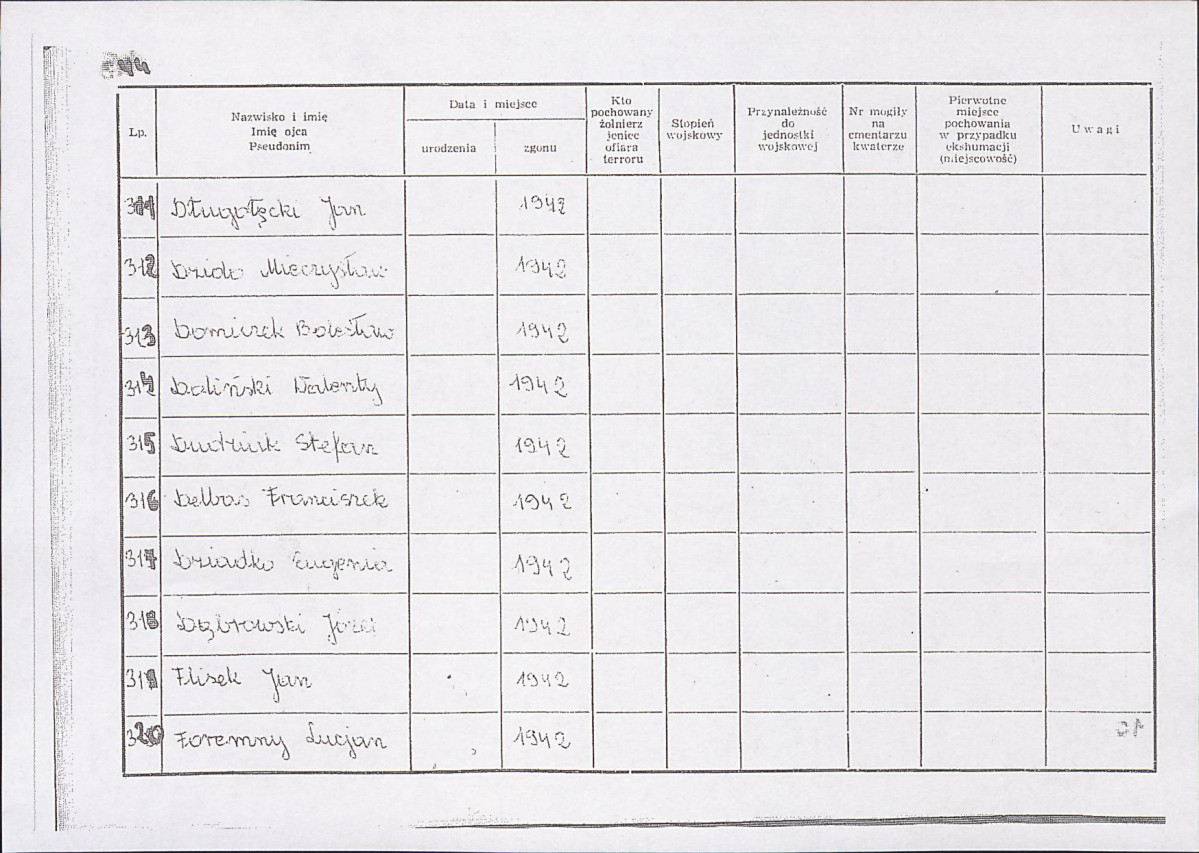 Lp.
Nazwisko i imię
Imię ojca
Pseudonim
Data i miejsce
urodzenia
zgonu
Kto
pochowany
żołnierz
jeniec
ofiara
terroru
Stopień
wojskowy
Przynależność
do
jednostki
wojskowej
Nr mogiły
na
cmentarzu
kwaterze
Pierwotne
miejsce
pochowania
w przypadku
ekshumacji
(miejscowość)
Uwagi
311 Długołęcki Jan 1942
312 Dzido Mieczysław 1942
313 Domiczek Bolesław 1942
314 Daliński Walenty 1942
315 Dudziuk Stefan 1942
316 Delbas Franciszek 1942
317 Dziadko Eugenia 1942
318 Dąbrowski Józef 1942
319 Flisek Jan 1942
320 Foremny Lucjan 1942